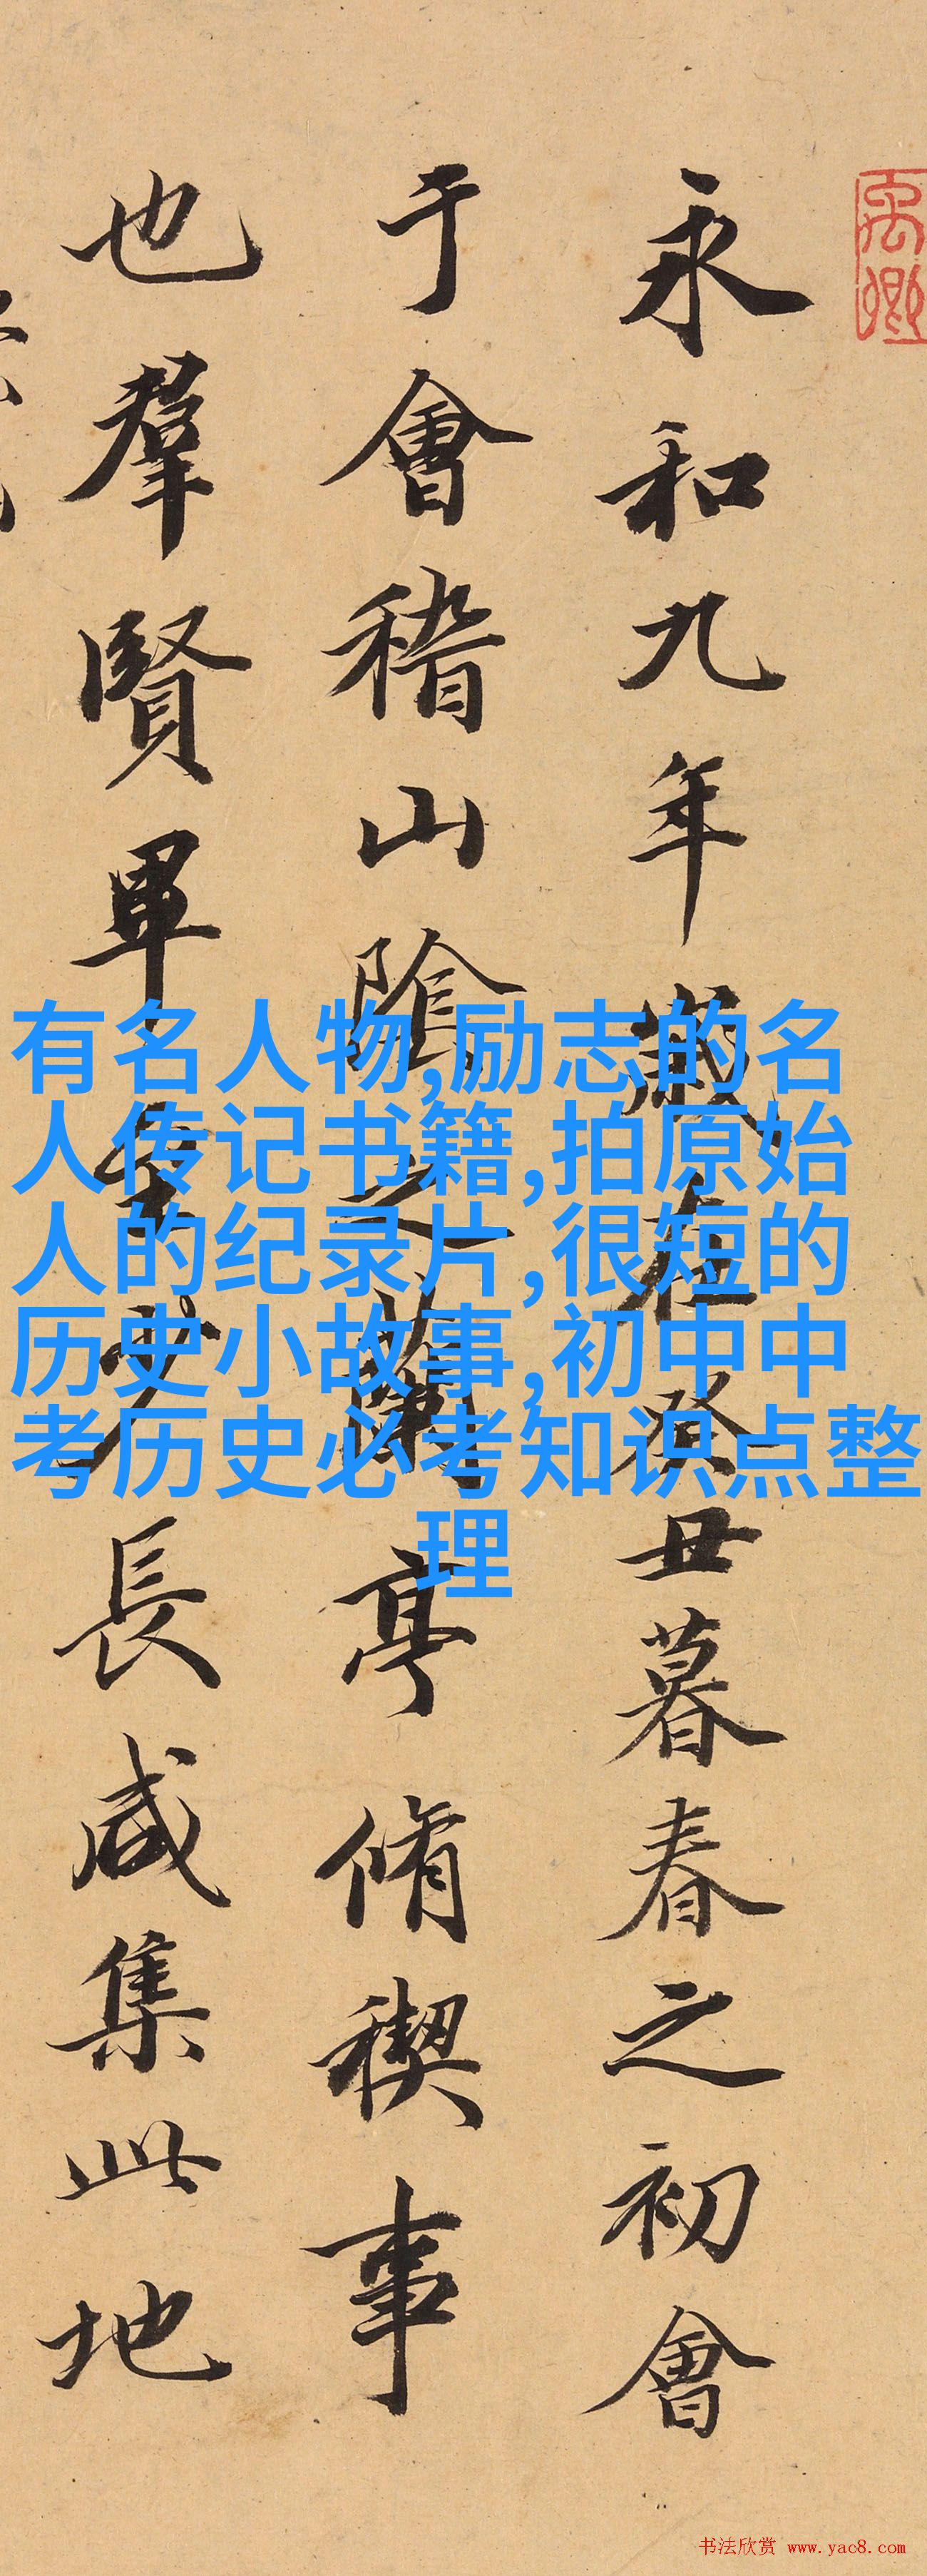 禹卿
永和九年歲在癸丑暮春之初會
于會稽山陰之蘭亭脩稧事
也羣賢畢至少長咸集此地
有名人物,励志的名
人传记书籍,拍原始
人的纪录片,很短的
历史小故事,初中中
考历史必考知识点整
理
书法欣赏 www.yac8.com